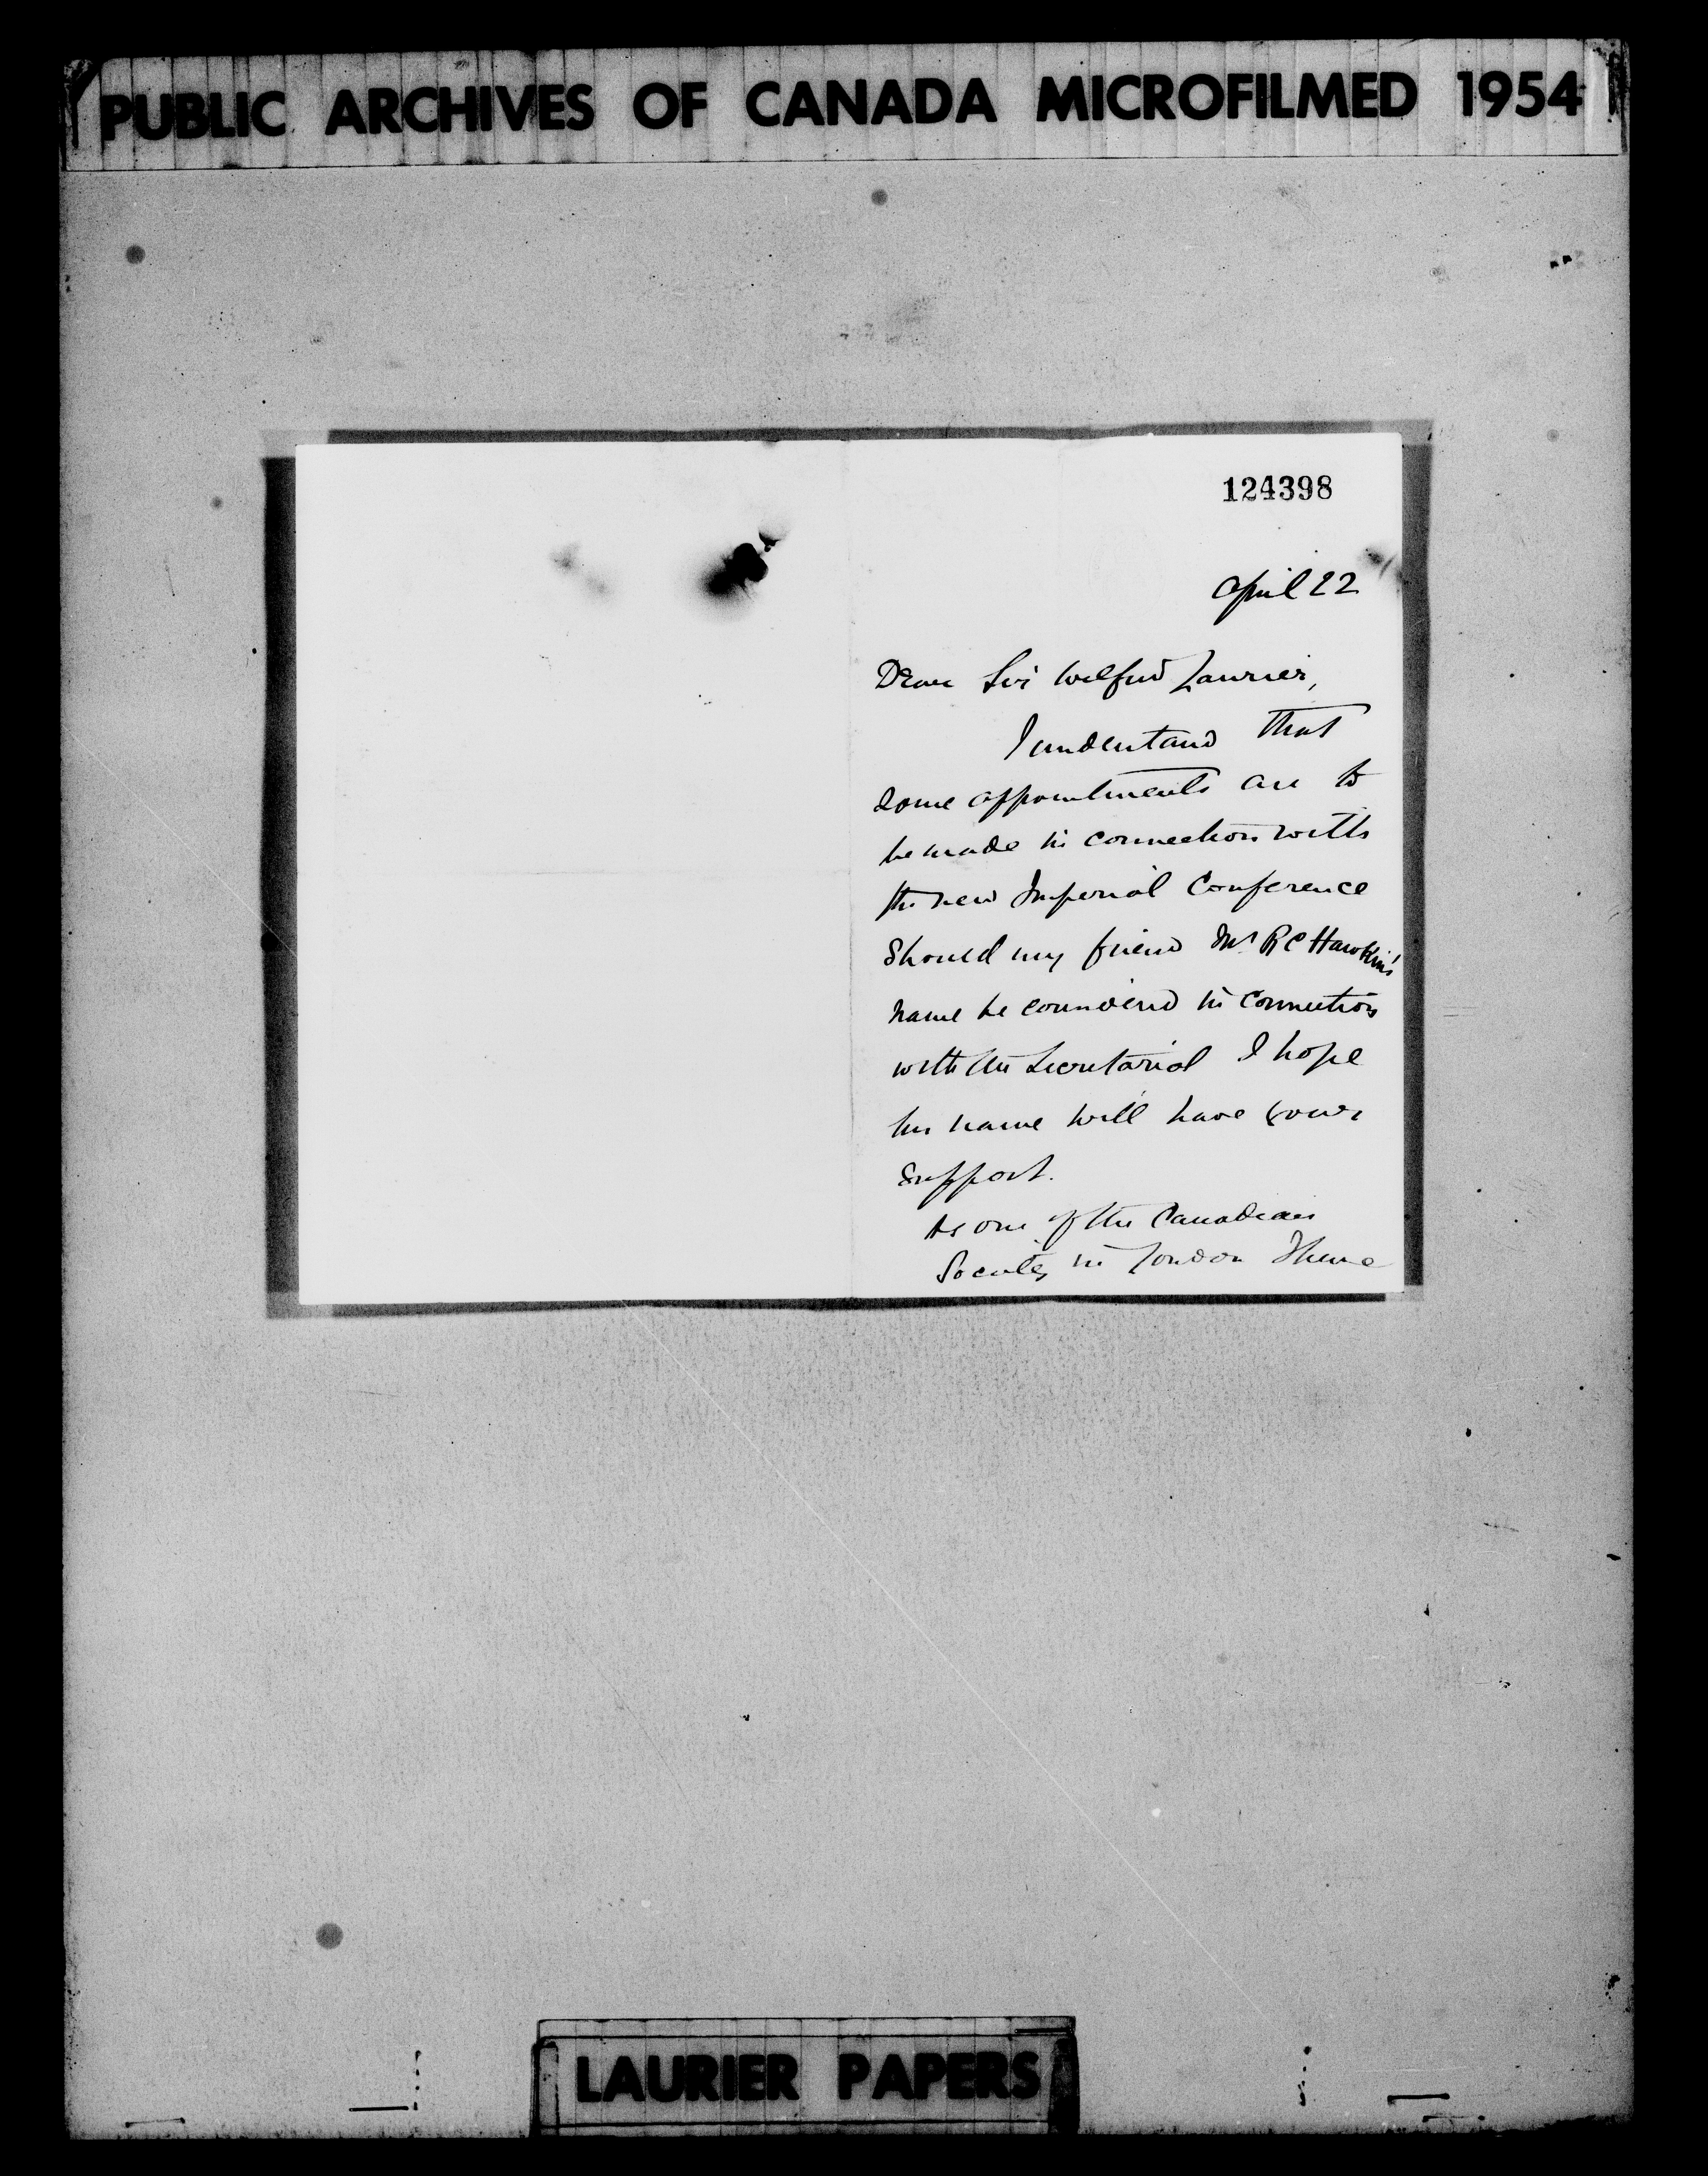 PUBLIC ARCHIVES OF CANADA MICROFILMED 1954
124398
April 22
Dear Sir Wilfrid Laurier,
I understand that
some appointments are to
be made in connection with
the new Imperial Conference
Should my friend Mr R C Hawkins'
name be considered in connection
with the Secretariat I hope
his name will have your
support.
As one of the Canadian
Society in London I have
LAURIER PAPERS